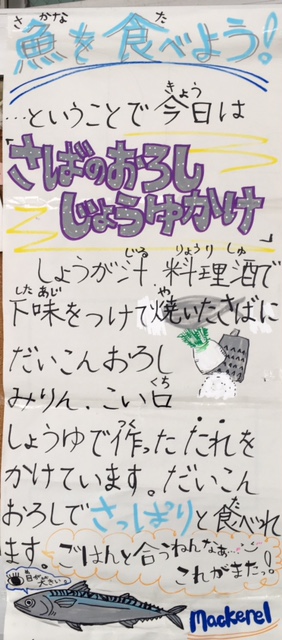 魚を食べよう!
…ということで今日は
「さばのおろし
じょうゆかけ」
しょうが汁 料理酒で
下味をつけて焼いたさばに
だいこんおろし
みりん、こい口
しょうゆで作ったたれを
かけています。だいこん
おろしでさっぱりと食べれ
ます。ごはんと合うねんなぁ…
これがまた!!
目が大きい!
Mackerel